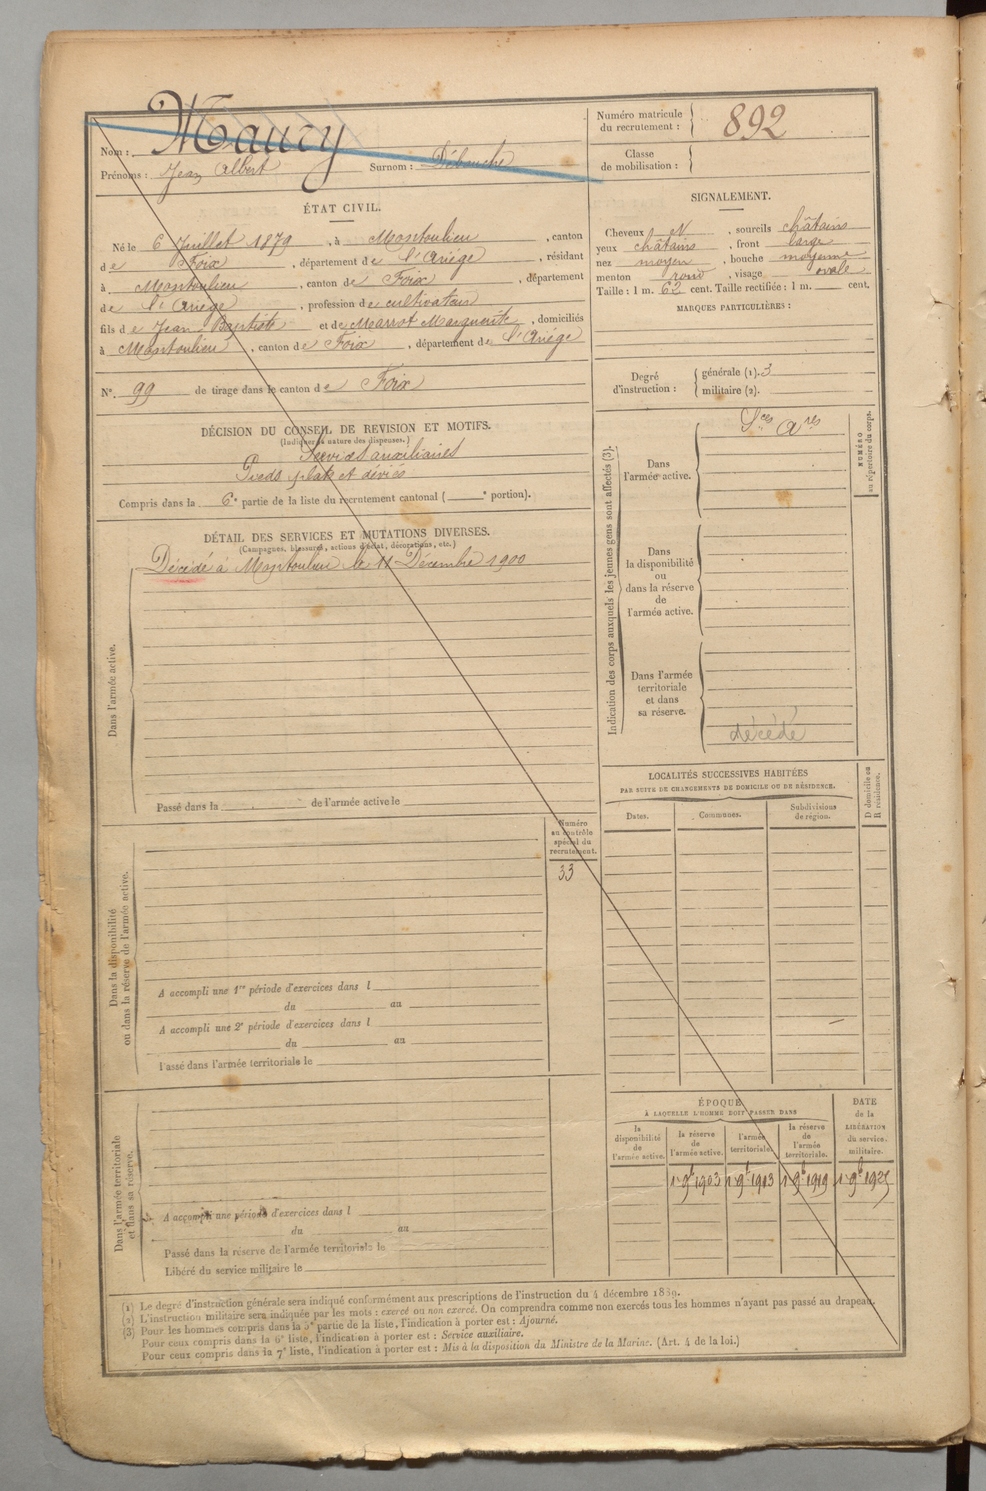 Nom : Maury
Prénoms : Jean Albert Surnom : Débauche
Numéro matricule du recrutement : 892
Classe de mobilisation :
ÉTAT CIVIL.
Né le 6 Juillet 1879, à Montoulieu, canton
de Foix, département de l'Ariège, résidant
à Montoulieu, canton de Foix, département
de l'Ariège, profession de cultivateur
fils de Jean Baptiste et de Marrot Marguerite, domiciliés
à Montoulieu, canton de Foix, département de l'Ariège
N° 99 de tirage dans le canton de Foix
SIGNALEMENT.
Cheveux N, sourcils châtains
yeux châtains, front large
nez moyen, bouche moyenne
menton rond, visage ovale
Taille : 1 m. 62 cent. Taille rectifiée : 1 m. cent.
MARQUES PARTICULIÈRES :
Degré d'instruction : générale (1). 3
militaire (2).
DÉCISION DU CONSEIL DE REVISION ET MOTIFS.
(Indiquer la nature des dispenses.)
Services auxiliaires
Pieds plats et déviés
Compris dans la 6e partie de la liste du recrutement cantonal ( e portion).
DÉTAIL DES SERVICES ET MUTATIONS DIVERSES.
(Campagnes, blessures, actions d'éclat, décorations, etc.)
Dans l'armée active.
Décédé à Montoulieu le 11 Décembre 1900
Passé dans la de l'armée active le
Indication des corps auxquels les jeunes gens sont affectés (3).
NUMÉRO au répertoire du corps.
Dans l'armée active.
Sces Ares
Dans la disponibilité ou dans la réserve de l'armée active.
Dans l'armée territoriale et dans sa réserve.
décédé
LOCALITÉS SUCCESSIVES HABITÉES
PAR SUITE DE CHANGEMENTS DE DOMICILE OU DE RÉSIDENCE.
Dates. Communes. Subdivisions de région. D domicile ou R résidence.
Dans la disponibilité ou dans la réserve de l'armée active.
Numéro au contrôle spécial du recrutement.
33
A accompli une 1re période d'exercices dans l
du au
A accompli une 2e période d'exercices dans l
du au
Passé dans l'armée territoriale le
Dans l'armée territoriale et dans sa réserve.
A accompli une période d'exercices dans l
du au
Passé dans la réserve de l'armée territoriale le
Libéré du service militaire le
ÉPOQUE
À LAQUELLE L'HOMME DOIT PASSER DANS
la disponibilité de l'armée active. la réserve de l'armée active. l'armée territoriale. la réserve de l'armée territoriale.
DATE de la LIBÉRATION du service militaire.
1er 9b 1903 1er 9b 1913 1er 9b 1919 1er 9b 1925
(1) Le degré d'instruction générale sera indiqué conformément aux prescriptions de l'instruction du 4 décembre 1889.
(2) L'instruction militaire sera indiquée par les mots : exercé ou non exercé. On comprendra comme non exercés tous les hommes n'ayant pas passé au drapeau.
(3) Pour les hommes compris dans la 5e partie de la liste, l'indication à porter est : Ajourné.
Pour ceux compris dans la 6e liste, l'indication à porter est : Service auxiliaire.
Pour ceux compris dans la 7e liste, l'indication à porter est : Mis à la disposition du Ministre de la Marine. (Art. 4 de la loi.)